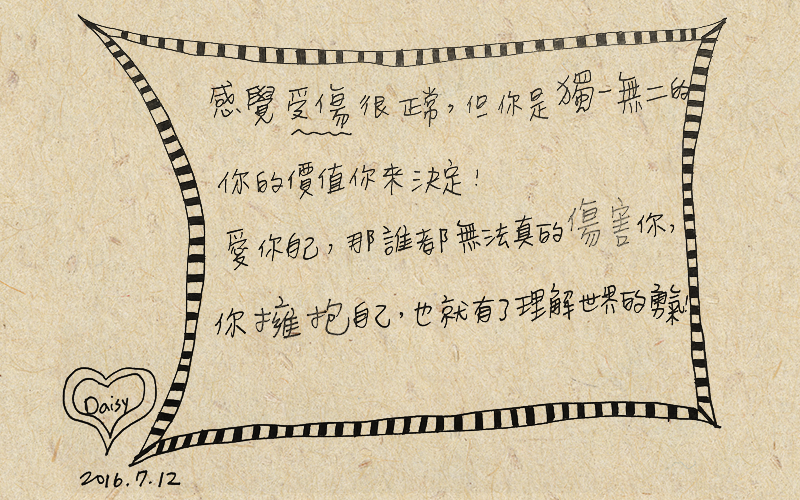 感覺受傷很正常，但你是獨一無二的
你的價值你來決定！
愛你自己，那誰都無法真的傷害你，
你擁抱自己，也就有了理解世界的勇氣！
Daisy
2016.7.12